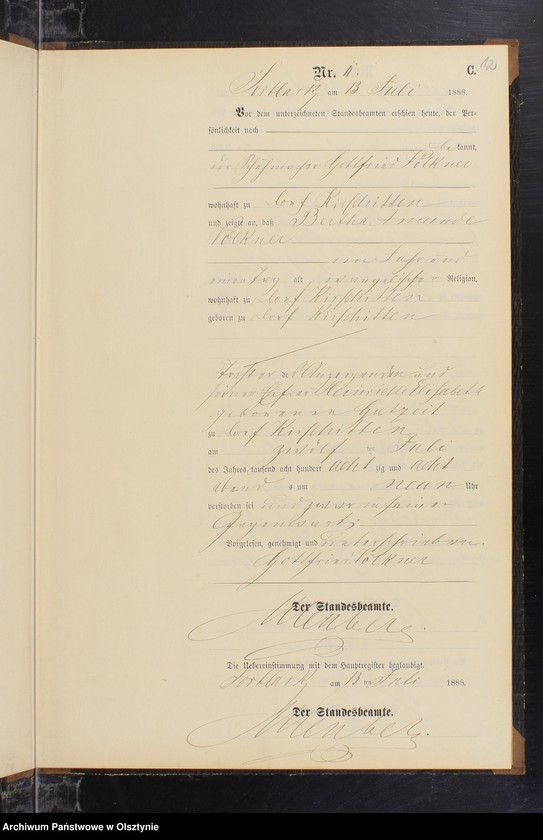 Nr. 4.
C.
12
am 13 Juli 1888.
Vor dem unterzeichneten Standesbeamten erschien heute, der Per-
sönlichkeit nach
be kannt,
der Schuhmacher Gottfried Völkner
wohnhaft zu Dorf Kirschitten
und zeigte an, daß Bertha Amande
Völkner
ein Jahr und
einen Tag alt, evangelischer Religion,
wohnhaft zu Dorf Kirschitten
geboren zu Dorf Kirschitten
Tochter des Anzeigenden und
seiner Ehefrau Henriette Elisabeth
geborenen Gutzeit
zu Dorf Kirschitten
am zwölf ten Juli
des Jahres tausend acht hundert acht zig und acht
Abend s um neun Uhr
verstorben sei und zwar in seiner
Gegenwart;
Vorgelesen, genehmigt und unterschrieben.
Gottfried Völkner
Der Standesbeamte.
Die Uebereinstimmung mit dem Hauptregister beglaubigt.
am 13 ten Juli 1888.
Der Standesbeamte.
Archiwum Państwowe w Olsztynie